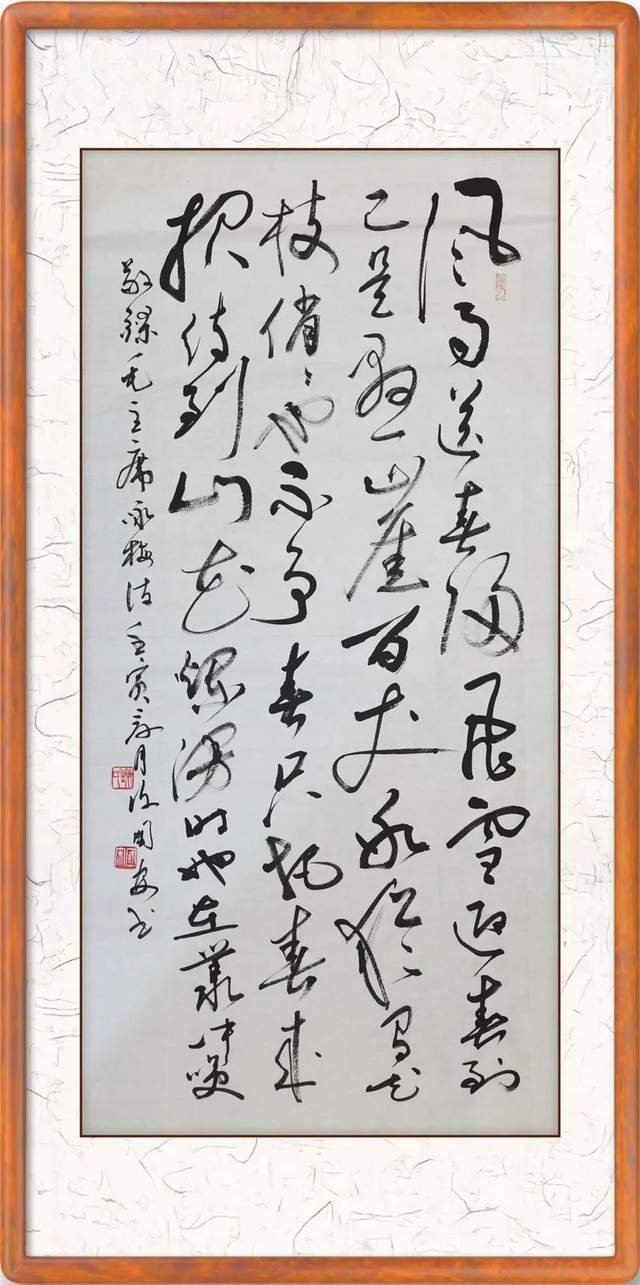 风雨送春归飞雪迎春到
已是悬崖百丈冰犹有花
枝俏俏也不争春只把春来
报待到山花烂漫时她在叢中笑
敬録毛主席咏梅壬寅月国安书